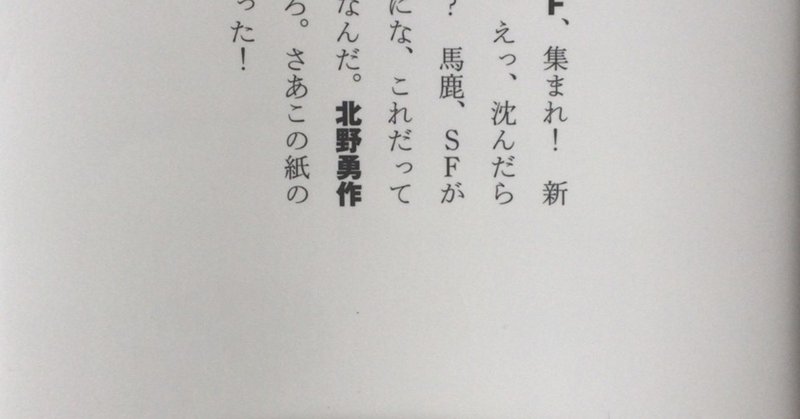 F、集まれ！　新
えっ、沈んだら
？　馬鹿、ＳＦが
にな、これだって
なんだ。北野勇作
ろ。さあこの紙の
った！